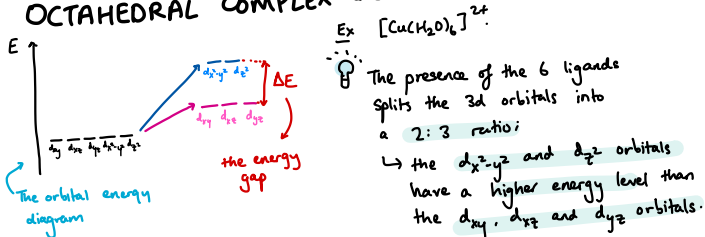 OCTAHEDRAL COMPLEX
Ex [Cu(H₂O)₆]²⁺.
E
dx²-y² dz²
ΔE
dxy dxz dyz
dxy dxz dyz dx²-y² dz²
the energy
gap
The orbital energy
diagram
The presence of the 6 ligands
splits the 3d orbitals into
a 2:3 ratio;
↳ the dx²-y² and dz² orbitals
have a higher energy level than
the dxy, dxz and dyz orbitals.